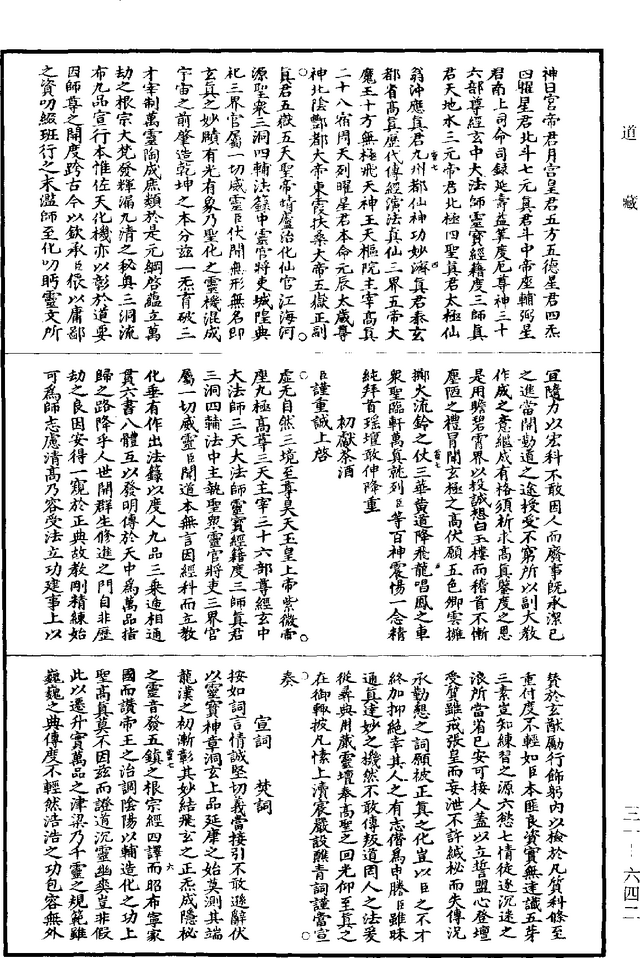 道藏
神日宮帝君月宮皇君五方五德星君四炁
四曜星君北斗七元真君斗中帝座輔弼星
君南上司命司録延壽益筭度厄尊神三十
六部尊經玄中大法師靈寶經籍度三師真
君天地水三元帝君北極四聖真君太極仙
翁沖應真君九州都仙神功妙濟真君泰玄
都省高真歷代傳經演法真仙三界五帝大
魔王十方無極飛天神王天樞院主宰高真
二十八宿周天列曜星君本命元辰太歲尊
神北陰酆都大帝東霞扶桑大帝五嶽正副
真君五嶽五天聖帝靖廬治化仙官江海河
源聖衆三洞四輔法籙中靈官將吏城隍典
祀三界官屬一切威靈臣伏聞無形無名即
玄真之妙賾有光有象乃聖化之靈機混成
宇宙之前肇造乾坤之本分玆一炁育破三
才宰制萬靈陶成庶類於是元綱啓蘊立萬
劫之根宗大梵發輝漏九清之秘奥三洞流
布九品宣行本惟佐天化機亦以彰於道要
因師尊之開度跨古今以欽承臣俵以庸鄙
之資叨綴班行之末濫師至化叨眄靈文所
宜隨力以宏科不敢因人而廢事既承潔已
之進當開勘道之途授受不窮所以副大教
作成之意繼成有格須祈求高真鑒度之恩
是用瞻碧霄界以投誠想白玉樓而稽首不慚
塵陋之禮冒聞玄極之高伏願五色御雲擁
擲火流鈴之仗三華黄道降飛龍唱鳳之車
衆聖臨軒萬真就列臣等百神震惕一念精
純拜首瑶壇敢伸降重
初獻茶酒
臣謹重誠上啓
虚无自然三境至尊昊天玉皇上帝紫微帝
座九極高尊三天主宰三十六部尊經玄中
大法師三天大法師靈寶經籍度三師真君
三洞四輔法中主執聖衆靈官將吏三界官
屬一切威靈臣聞道本無言因經科而立教
化垂有作出法籙以度人九品三乘連相通
貫六書八體互以發明傳於天中爲萬品指
歸之路降乎人世開群生修進之門自非歷
劫之良因安得一窺於正典故教剛精練始
可爲師志慮清高乃容受法立功建事上以
賛於玄猷勵行飾躬内以檢於凡質科條至
重付度不輕如臣本匪良資實無達識五芽
三素豈知練習之源六慾七情徒逐沉迷之
浪所當省已安可接人蓋以立誓盟心登壇
受質雖戒張皇而妄泄不許緘秘而失傳況
承勤懇之詞願被正真之化豈以臣之不才
終加抑絶幸其人之有志偕爲申勝臣雖昧
通真達妙之機然不敢傳叛道罔人之法爰
從尋典用嚴靈壇奉高聖之回光仰至真之
在御輒披凡愫上瀆宸嚴設醮青詞謹當宣
奏
宣詞 焚詞
按如詞言情誠堅切義當接引不敢遜辭伏
以靈寶神章洞玄上品延康之始莫測其端
龍漢之初漸彰其妙結飛玄之正炁成隱秘
之靈音發五鎮之根宗經四譯而昭布寧家
國而讚帝王之治調陰陽以輔造化之功上
聖高真莫不因玆而證道沉靈幽爽皇非假
此以遷升實萬品之津梁乃千靈之規範雖
巍巍之典傳度不輕然浩浩之功包容無外
三一－六四二